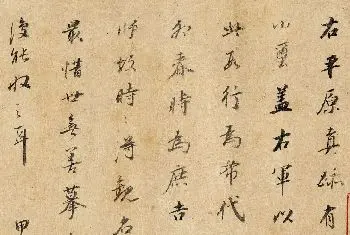 右平原真跡有
小璽蓋右軍以
此行為希代
時為庶吉
師時時得觀
最惜世無善摹
能收之耳 甲